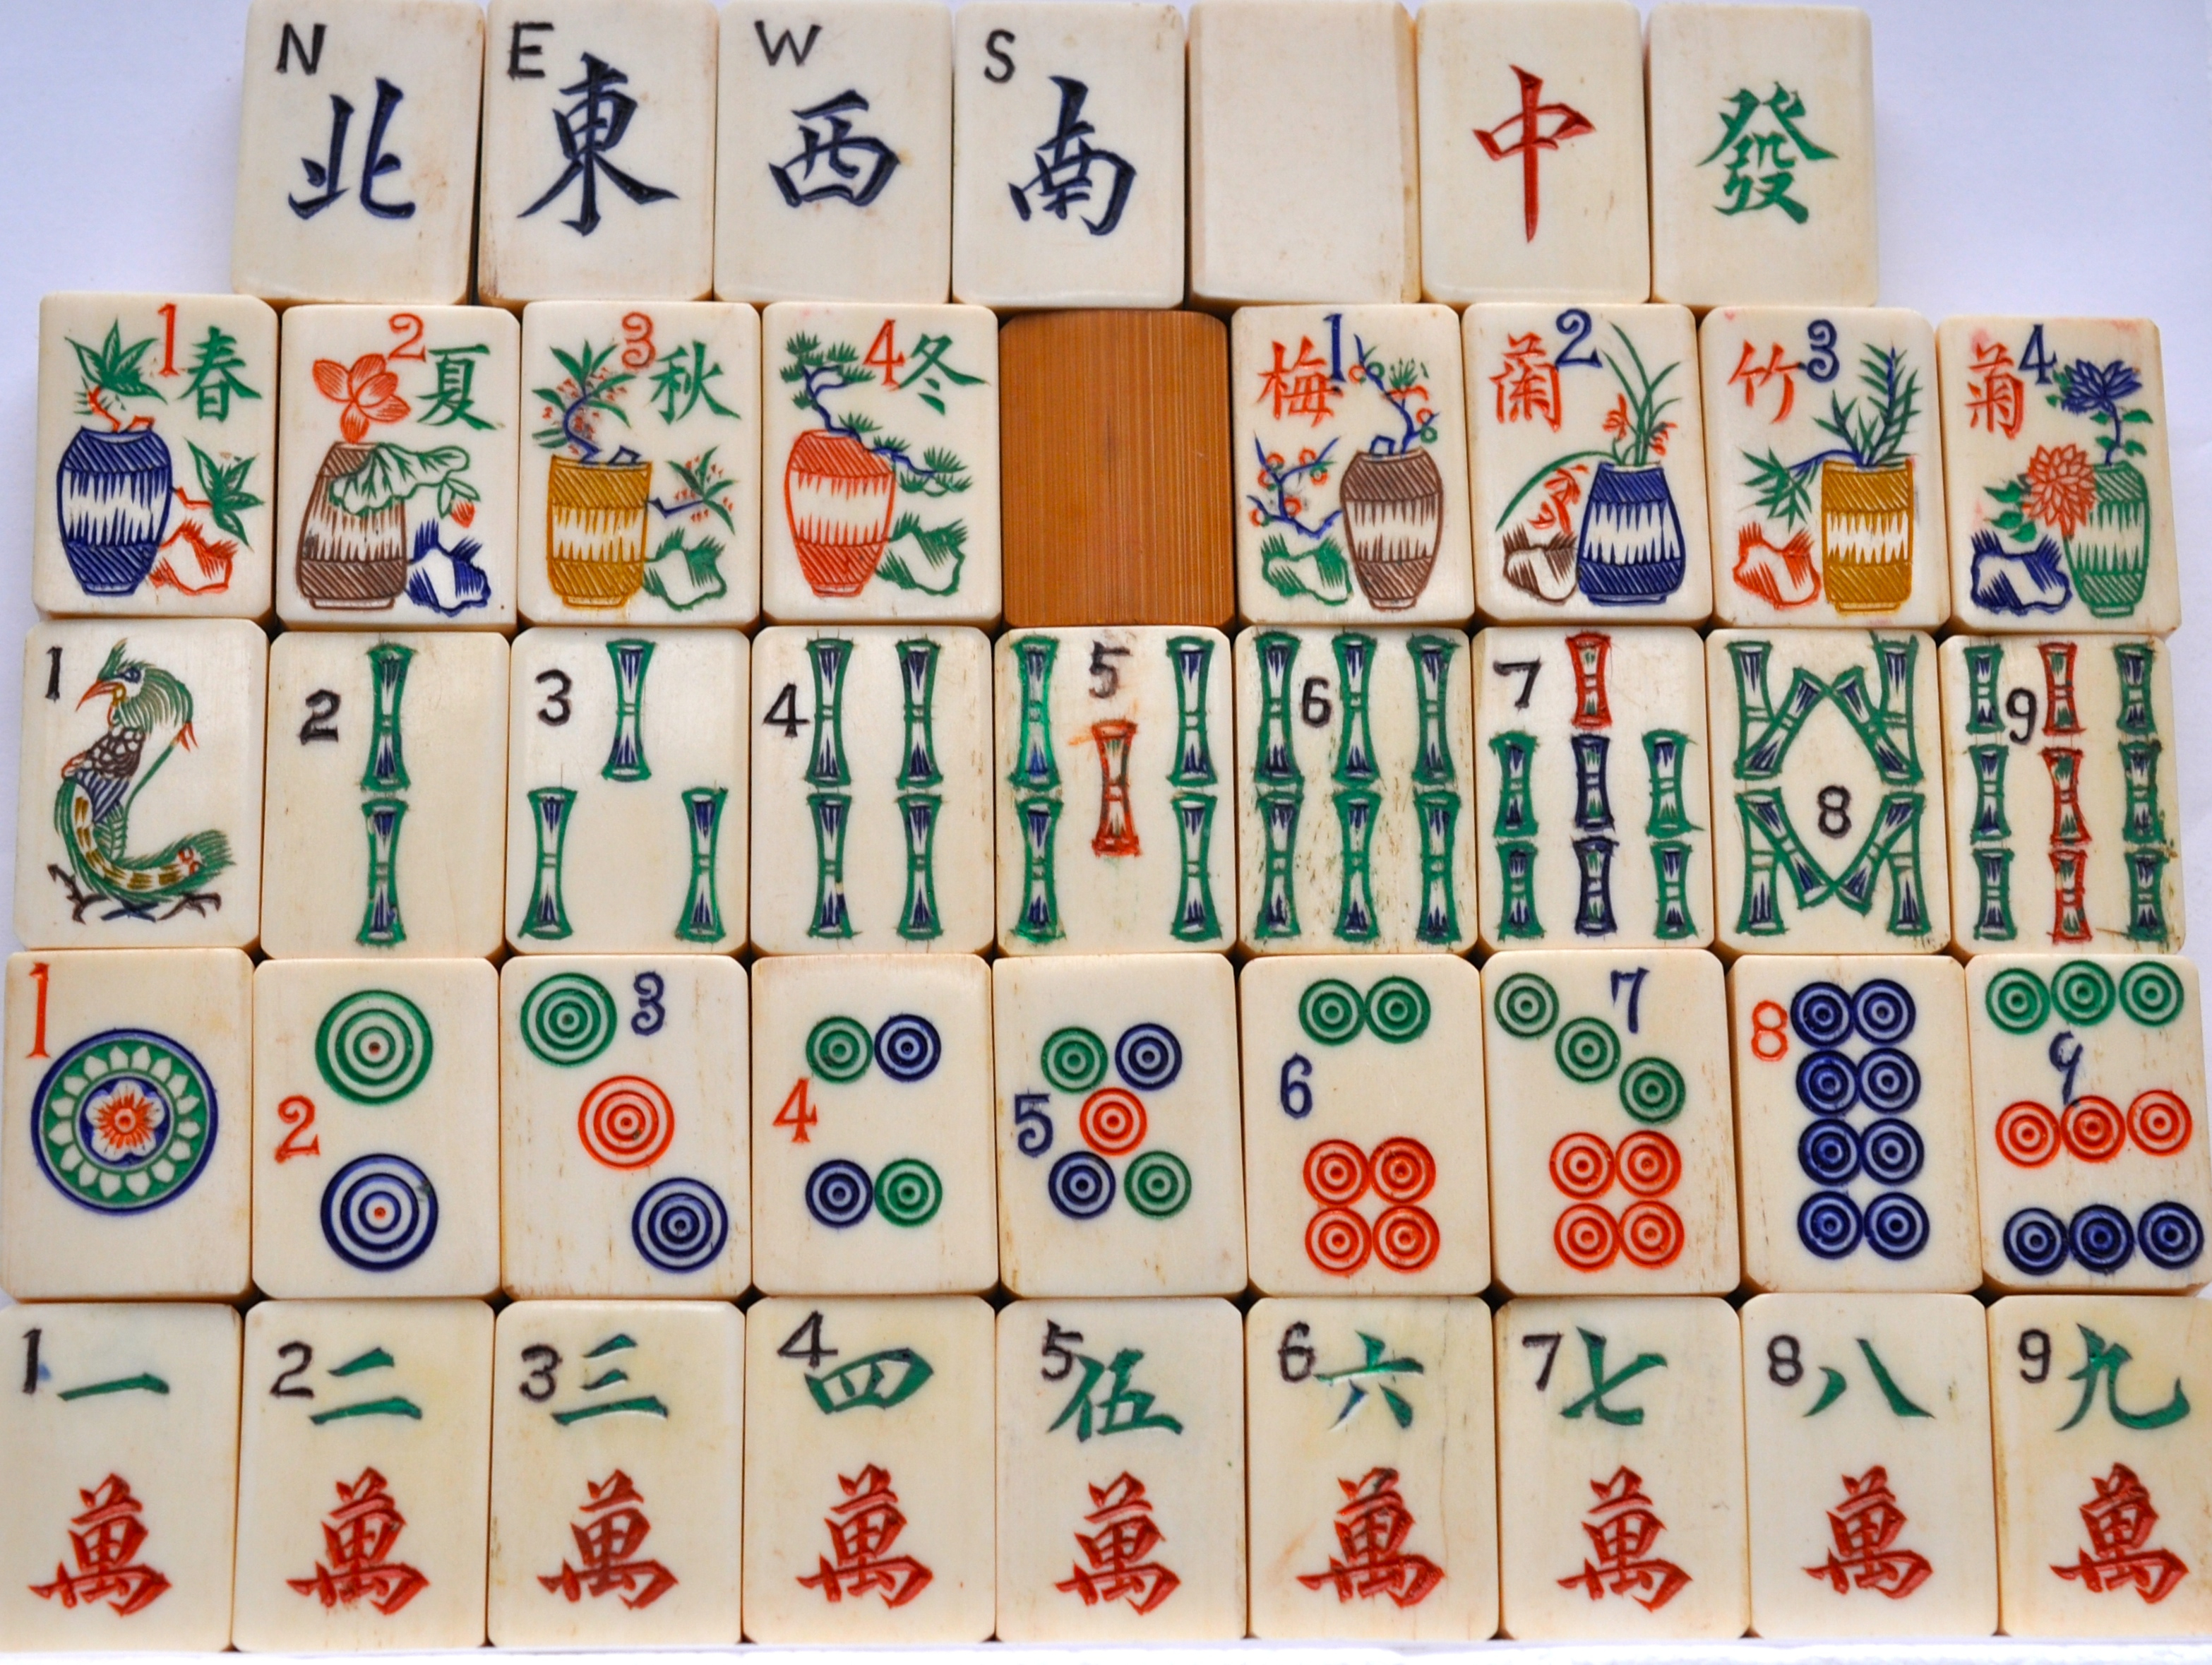 N 北 E 東 W 西 S 南 中 發
1 春 2 夏 3 秋 4 冬 梅 1 蘭 2 竹 3 菊 4
1 2 3 4 5 6 7 8 9
1 2 3 4 5 6 7 8 9
1 一 2 二 3 三 4 四 5 伍 6 六 7 七 8 八 9 九
萬 萬 萬 萬 萬 萬 萬 萬 萬